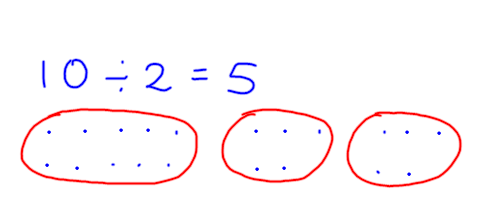 10 ÷ 2 = 5